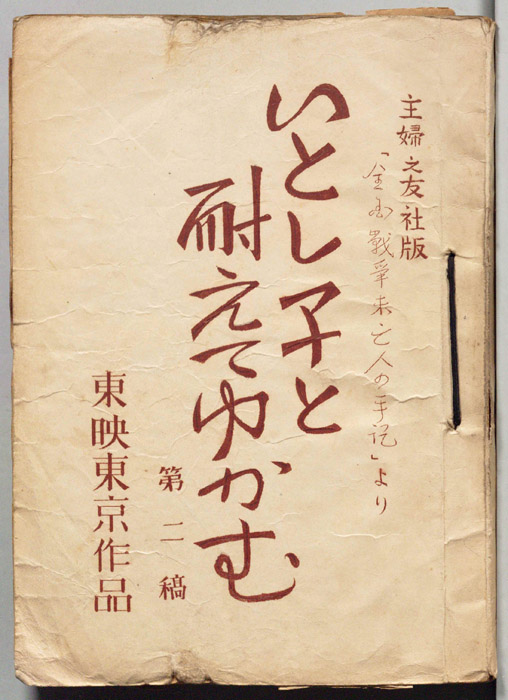 主婦之友社版
「全国戰爭未亡人の手記」より
いとし子と
耐えてゆかむ
第二稿
東映東京作品